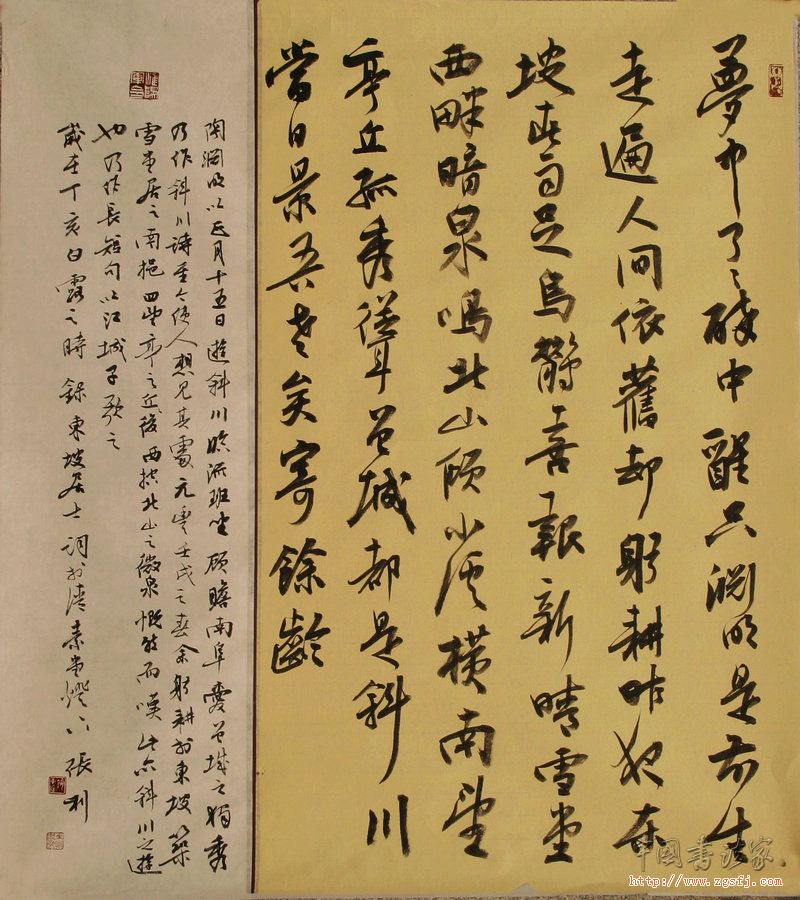 夢中了了醉中醒只淵明是前生
走遍人間依舊却躬耕昨夜東
坡春雨足烏鵲喜報新晴雪堂
西畔暗泉鳴北山傾小溪橫南望
亭丘孤秀聳曾城都是斜川
當日景吾老矣寄餘齡
陶淵明以正月十五日遊斜川臨流班坐顧瞻南阜愛曾城之獨秀
乃作斜川詩至今使人想見其處元豐壬戌之春余躬耕於東坡築
雪堂居之南挹四望亭之丘後西控北山之微泉慨然而嘆此亦斜川之遊
也乃作長短句以江城子歌之
歲在丁亥白露之時錄東坡居士詞於清素堂燈下張利
中国书法家
http://www.zgsfj.com